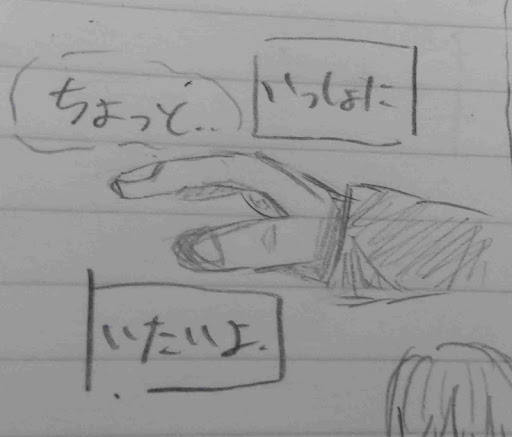 いっしょに
ちょっと..
いたいよ.